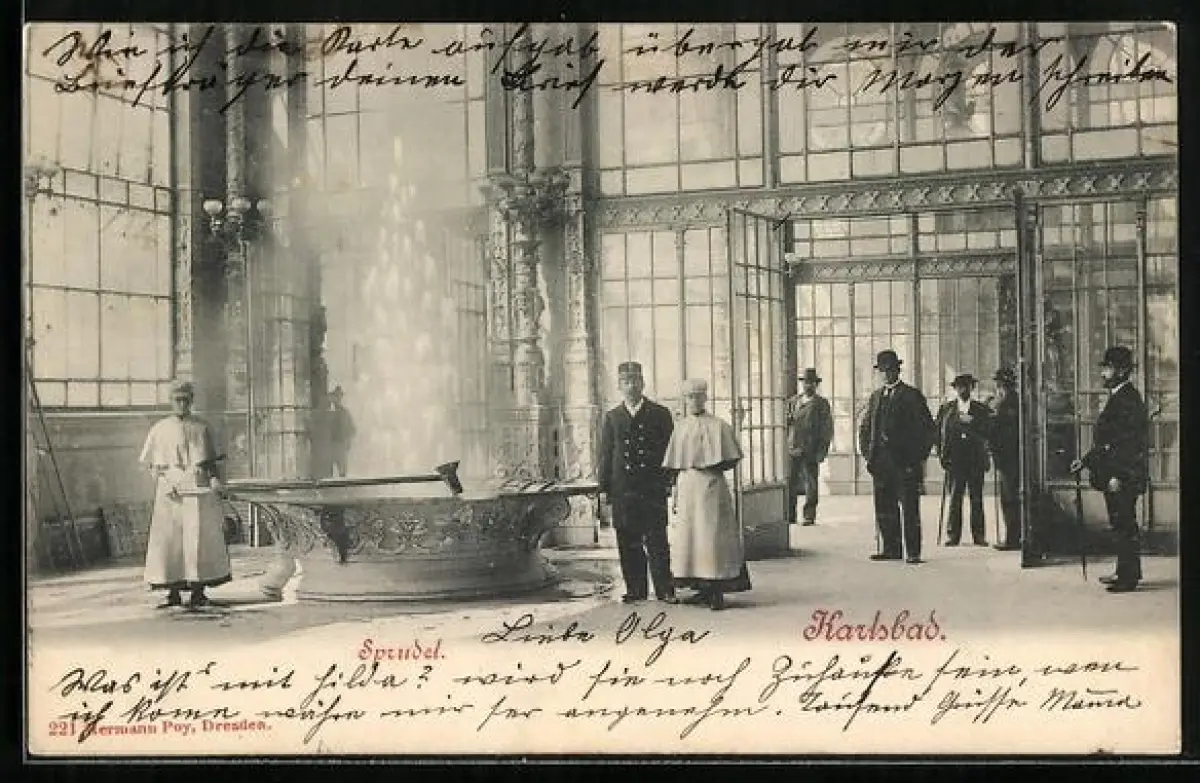 Wie ich die Karte aufgab übergab mir der
Briefträger deinen Brief werde dir Morgen schreiben
Sprudel.
Liebe Olga
Karlsbad.
Was ist's mit Hilda? wird sie noch Zuhause sein, wen
ich kome währe mir ser angenehm. Tausend Grüsse Mama
221 Hermann Poy, Dresden.